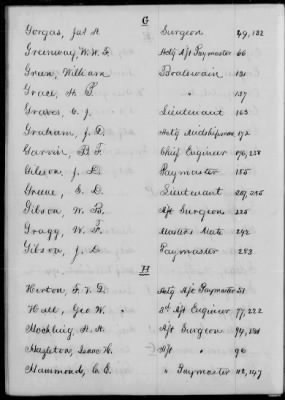 G
Gorgas, Jas A. Surgeon 29, 132
Greenway, W. W. S. Actg Ast Paymaster 66
Green, William Boatswain 121
Grace, H. P. " 137
Graves, C. J. Lieutenant 163
Graham, J. D. Actg Midshipman 172
Garvin, B. F. Chief Engineer 176, 258
Gibson, J. D. Paymaster 185
Greene, S. D. Lieutenant 209, 215
Gibson, W. B. Ast Surgeon 225
Gragg, W. F. Masters Mate 242
Gibson, J. D. Paymaster 283
H
Horton, F. V. D. Actg Ast Paymaster 51
Hall, Geo W. 3d Ast Engineer 77, 222
Hazleton, Isaac H. Ast " 96
Hammond, C. E. " Paymaster 112, 147